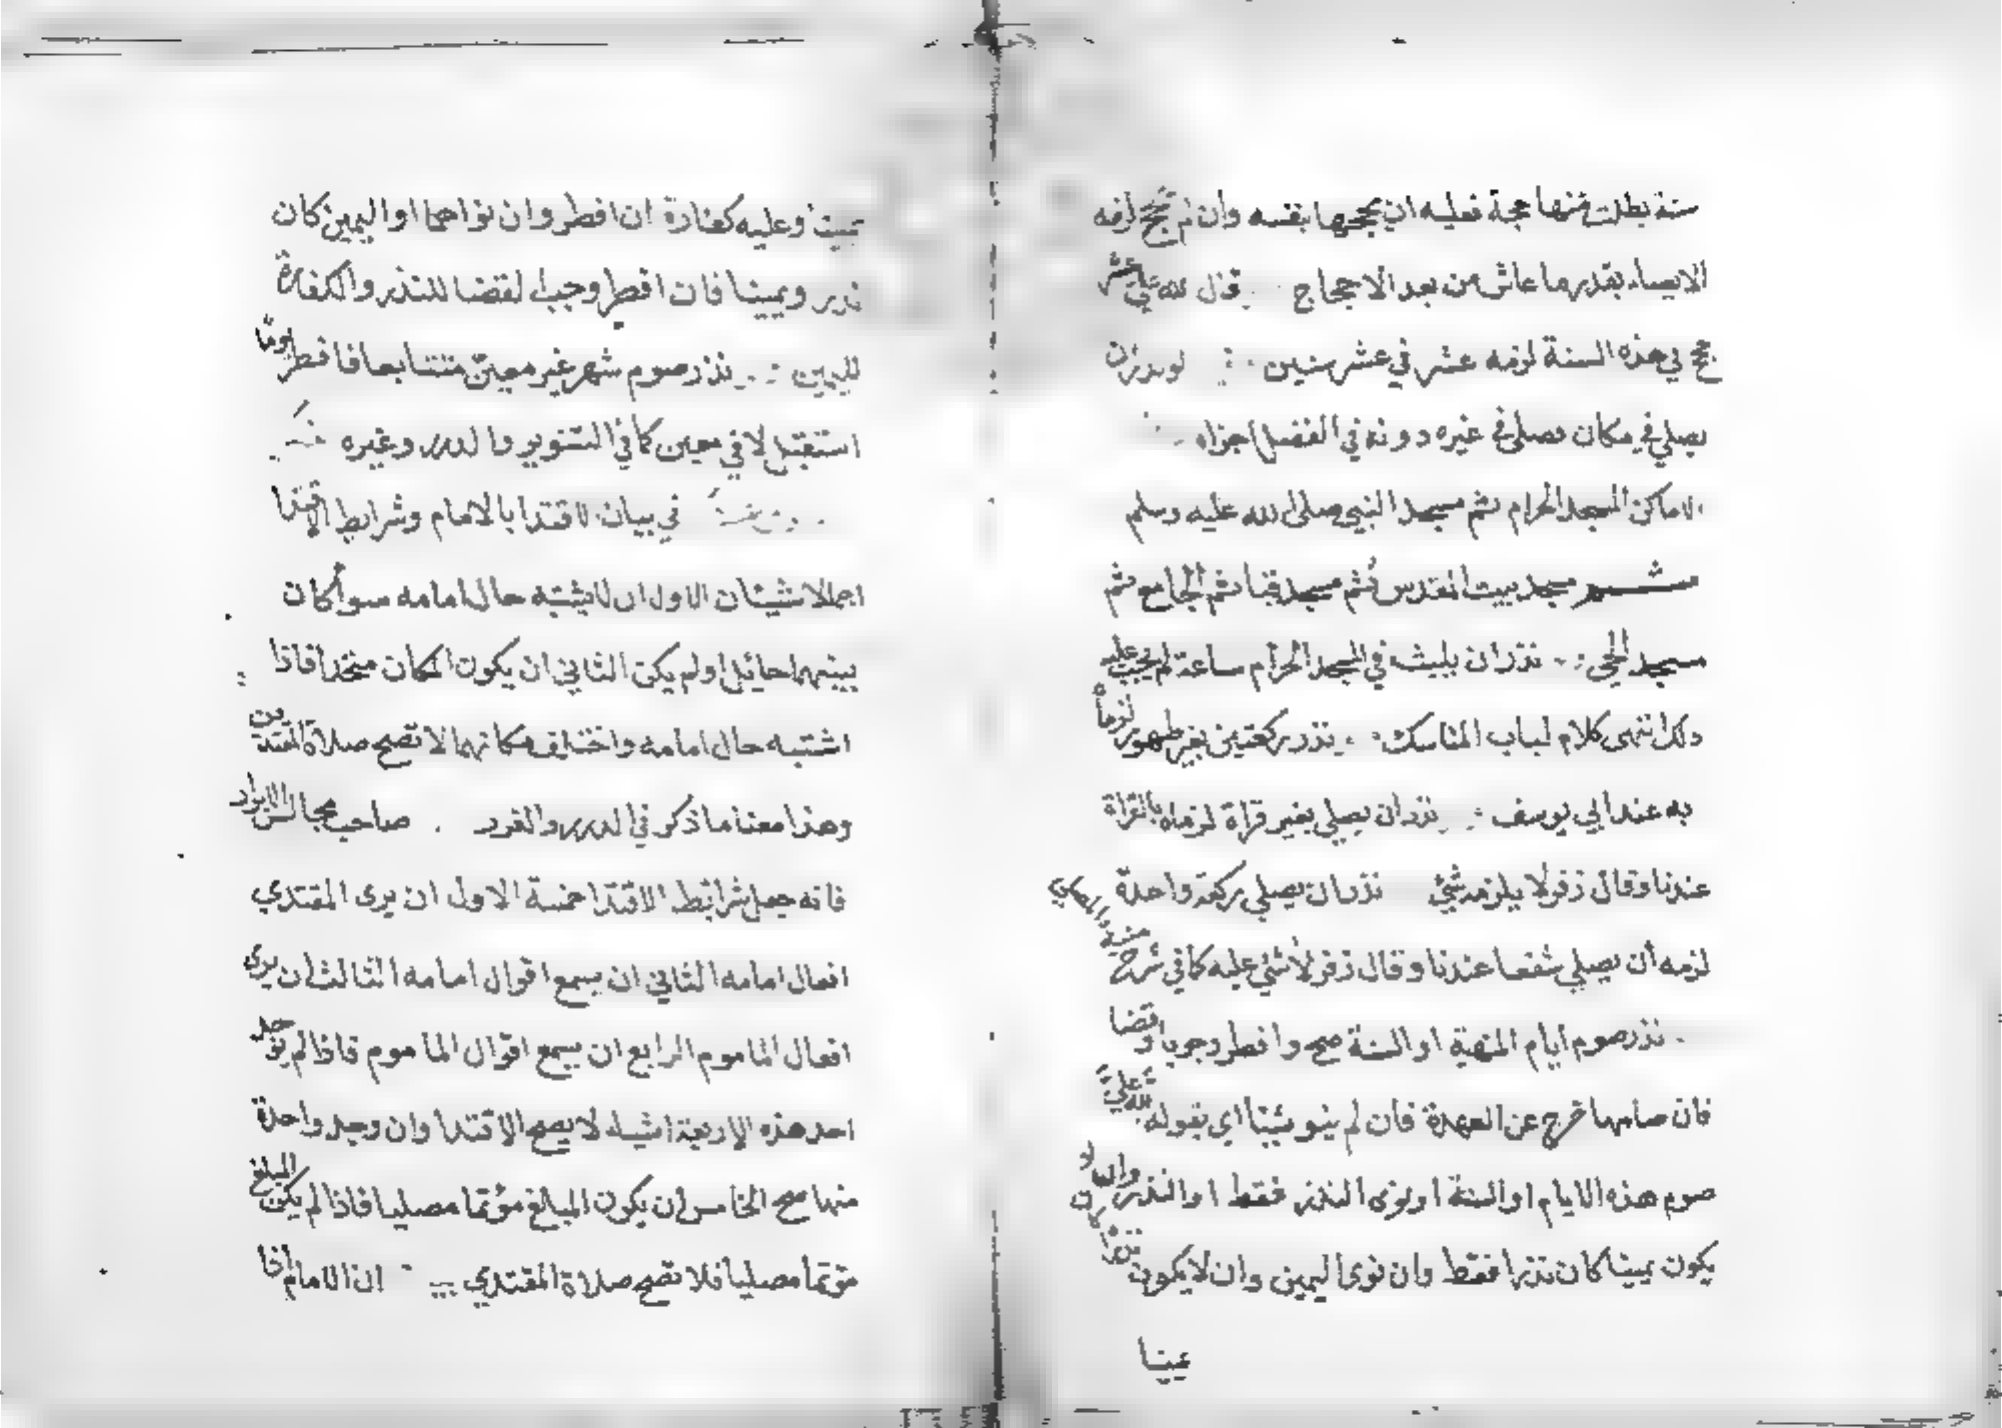 سنة بطلت منها حجة فعليه ان يحجها بنفسه وان لم يحج لزمه
الايصاء بقدر ما عاش من بعد الاحجاج قال لله علي عشر
حج في هذه السنة لزمه عشر في عشر سنين لو نذر ان
يصلي في مكان فصلى في غيره دونه في الفضل اجزاه
الاماكن المسجد الحرام ثم مسجد النبي صلى الله عليه وسلم
ثم مسجد بيت المقدس ثم مسجد قبا ثم الجامع ثم
مسجد الحي نذر ان يلبث في المسجد الحرام ساعة لم يجب عليه
ذلك انتهى كلام لباب المناسك نذر ركعتين بغير طهور لزماه
به عند ابي يوسف نذر ان يصلي بغير قراة لزماه بالقراة
عندنا وقال زفر لا يلزمه شئ نذر ان يصلي ركعة واحدة
لزمه أن يصلي شفعا عندنا وقال زفر لا شئ عليه كما في شرح
نذر صوم ايام المنهية او السنة صح وافطر وجوبا وقضا
فان صامها خرج عن العهدة فان لم ينو شيئا اي بقوله لله علي
صوم هذه الايام او السنة او نوى النذر فقط او النذر وان لا
يكون يمينا كان نذرا فقط وان نوى اليمين وان لا يكون
يمينا
يمينا وعليه كفارة ان افطر وان نواهما او اليمين كان
نذر ويمينا فان افطر وجب القضا للنذر والكفارة
لليمين نذر صوم شهر غير معين متتابعا فافطر يوما
استقبل لا في معين كما في التنوير والدرر وغيره
في بيان الاقتدا بالامام وشرايط الاقتدا
اجمالا شيئان الاول ان لا يشتبه حال امامه سوأ كان
بينهما حائل او لم يكن الثاني ان يكون المكان متحدا فاذا
اشتبه حال امامه واختلف مكانهما لا تصح صلاة المقتدين
وهذا معنا ما ذكر في الدرر والغرر صاحب مجالس الابرار
فانه جعل شرائط الاقتدا خمسة الاول ان يرى المقتدي
افعال امامه الثاني ان يسمع اقوال امامه الثالث ان يرى
افعال الماموم الرابع ان يسمع اقوال الماموم فاذا لم يوجد
احد هذه الاربعة اشياء لا يصح الاقتدا وان وجد واحدة
منها صح الخامس أن يكون المبلغ مؤتما مصليا فاذا لم يكن المبلغ
مؤتما مصليا فلا تصح صلاة المقتدي ان الامام اذا